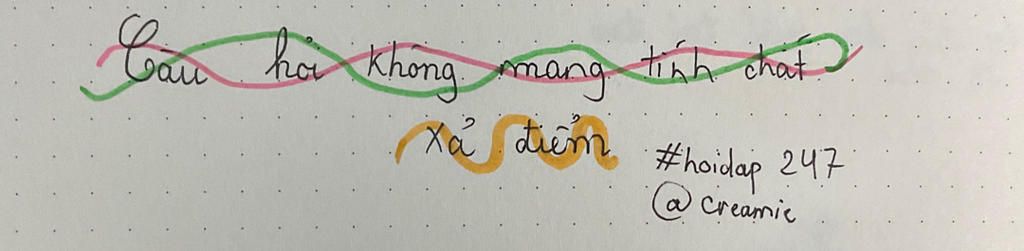 Câu hỏi không mang tính chất
xả điểm
#hoidap 247
@creamie